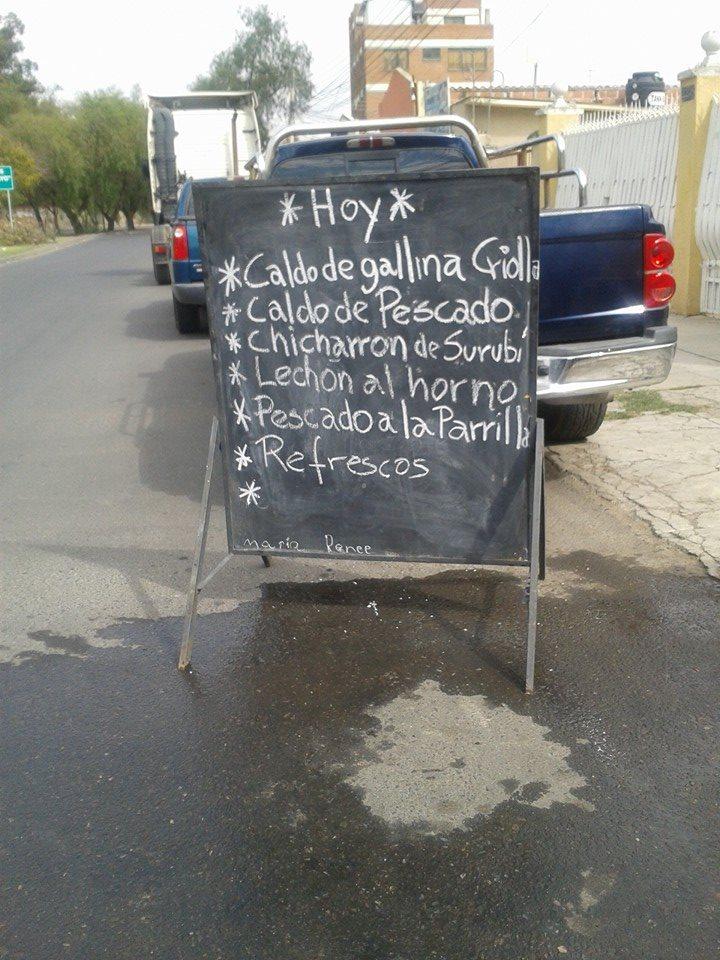 *Hoy*
*Caldo de gallina Criolla
*Caldo de Pescado
*Chicharron de Surubí
*Lechón al horno
*Pescado a la Parrilla
*Refrescos
*
Maria Renee